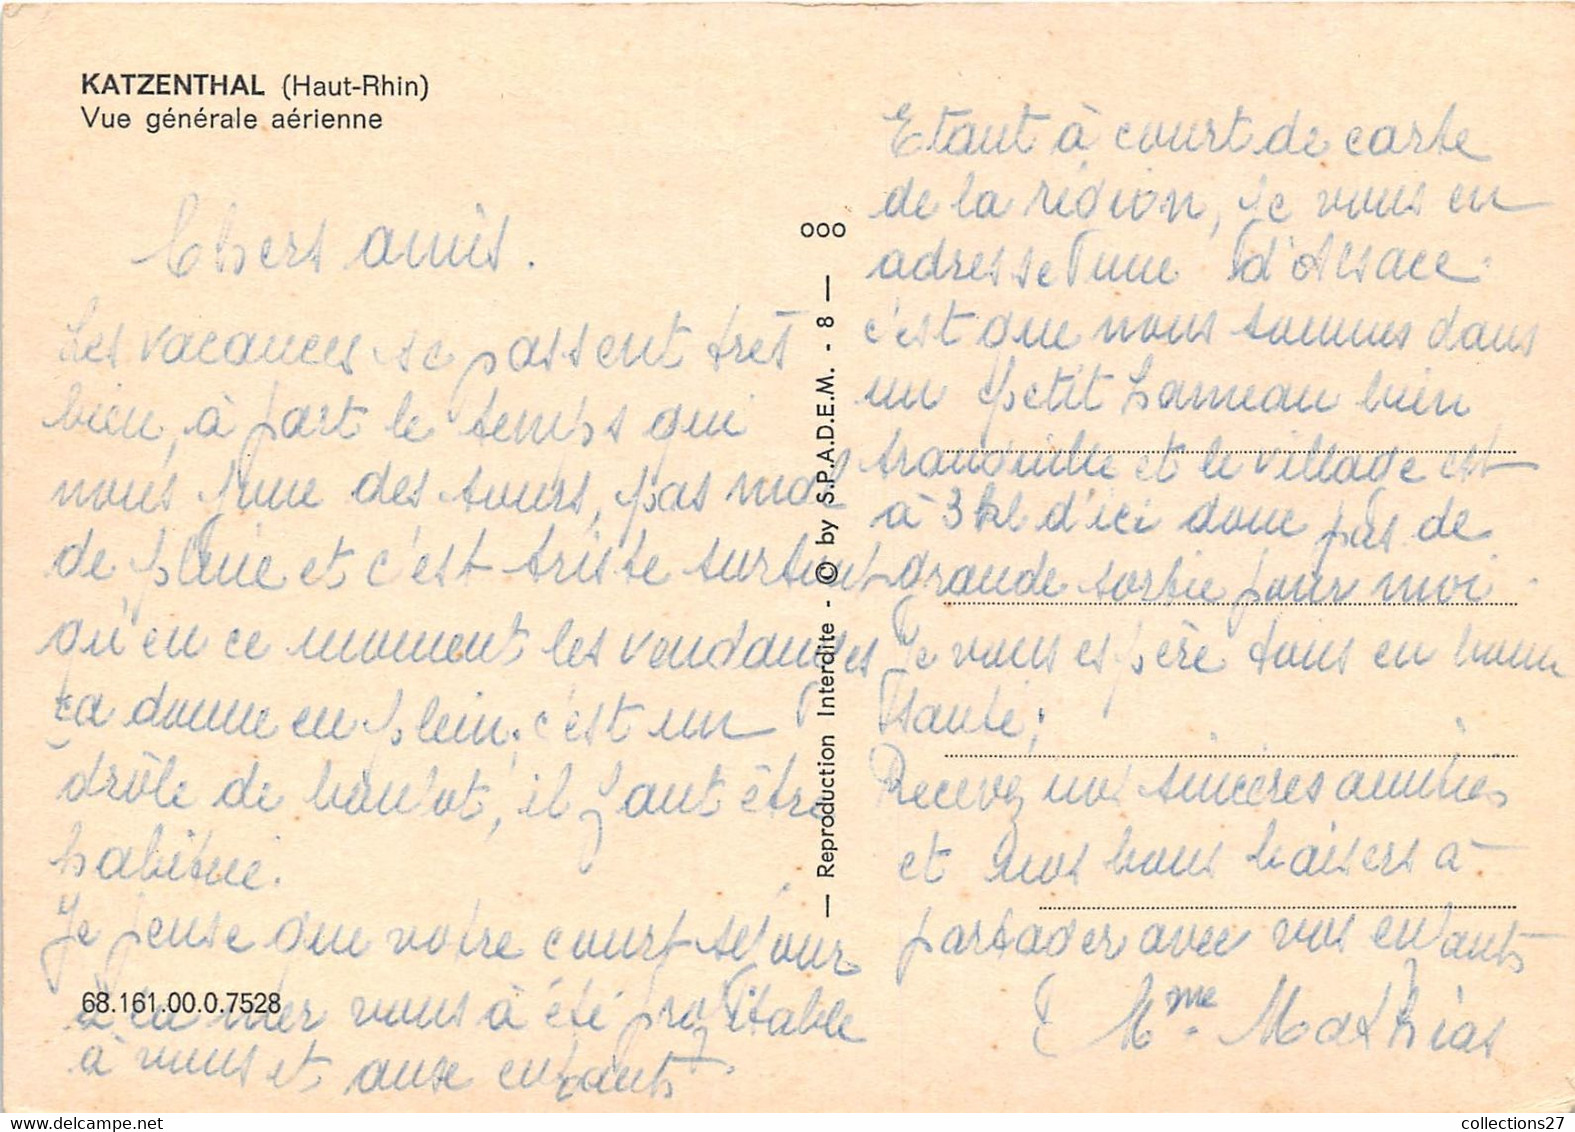 KATZENTHAL (Haut-Rhin)
Vue générale aérienne
Chers amis.
Les vacances se passent très
bien, à part le temps qui
nous joue des tours, pas mal
de pluie et c'est triste surtout
qu'en ce moment les vendanges
ça donne en plein, c'est un
drôle de boulot, il faut être
habitué.
Je pense que votre court séjour
à la mer vous à été profitable
à vous et aux enfants.
68.161.00.0.7528
ooo
— Reproduction Interdite - © by S.P.A.D.E.M. - 8 —
Etant à court de carte
de la région, je vous en
adresse une d'Alsace.
c'est que nous sommes dans
un petit hameau bien
tranquille et le village est
à 3 kl d'ici donc pas de
grande sortie pour moi.
Je vous espère tous en bonne
santé.
Recevez nos sincères amitiés
et nos bons baisers à
partager avec vos enfants
Mme. Mathias
collections27